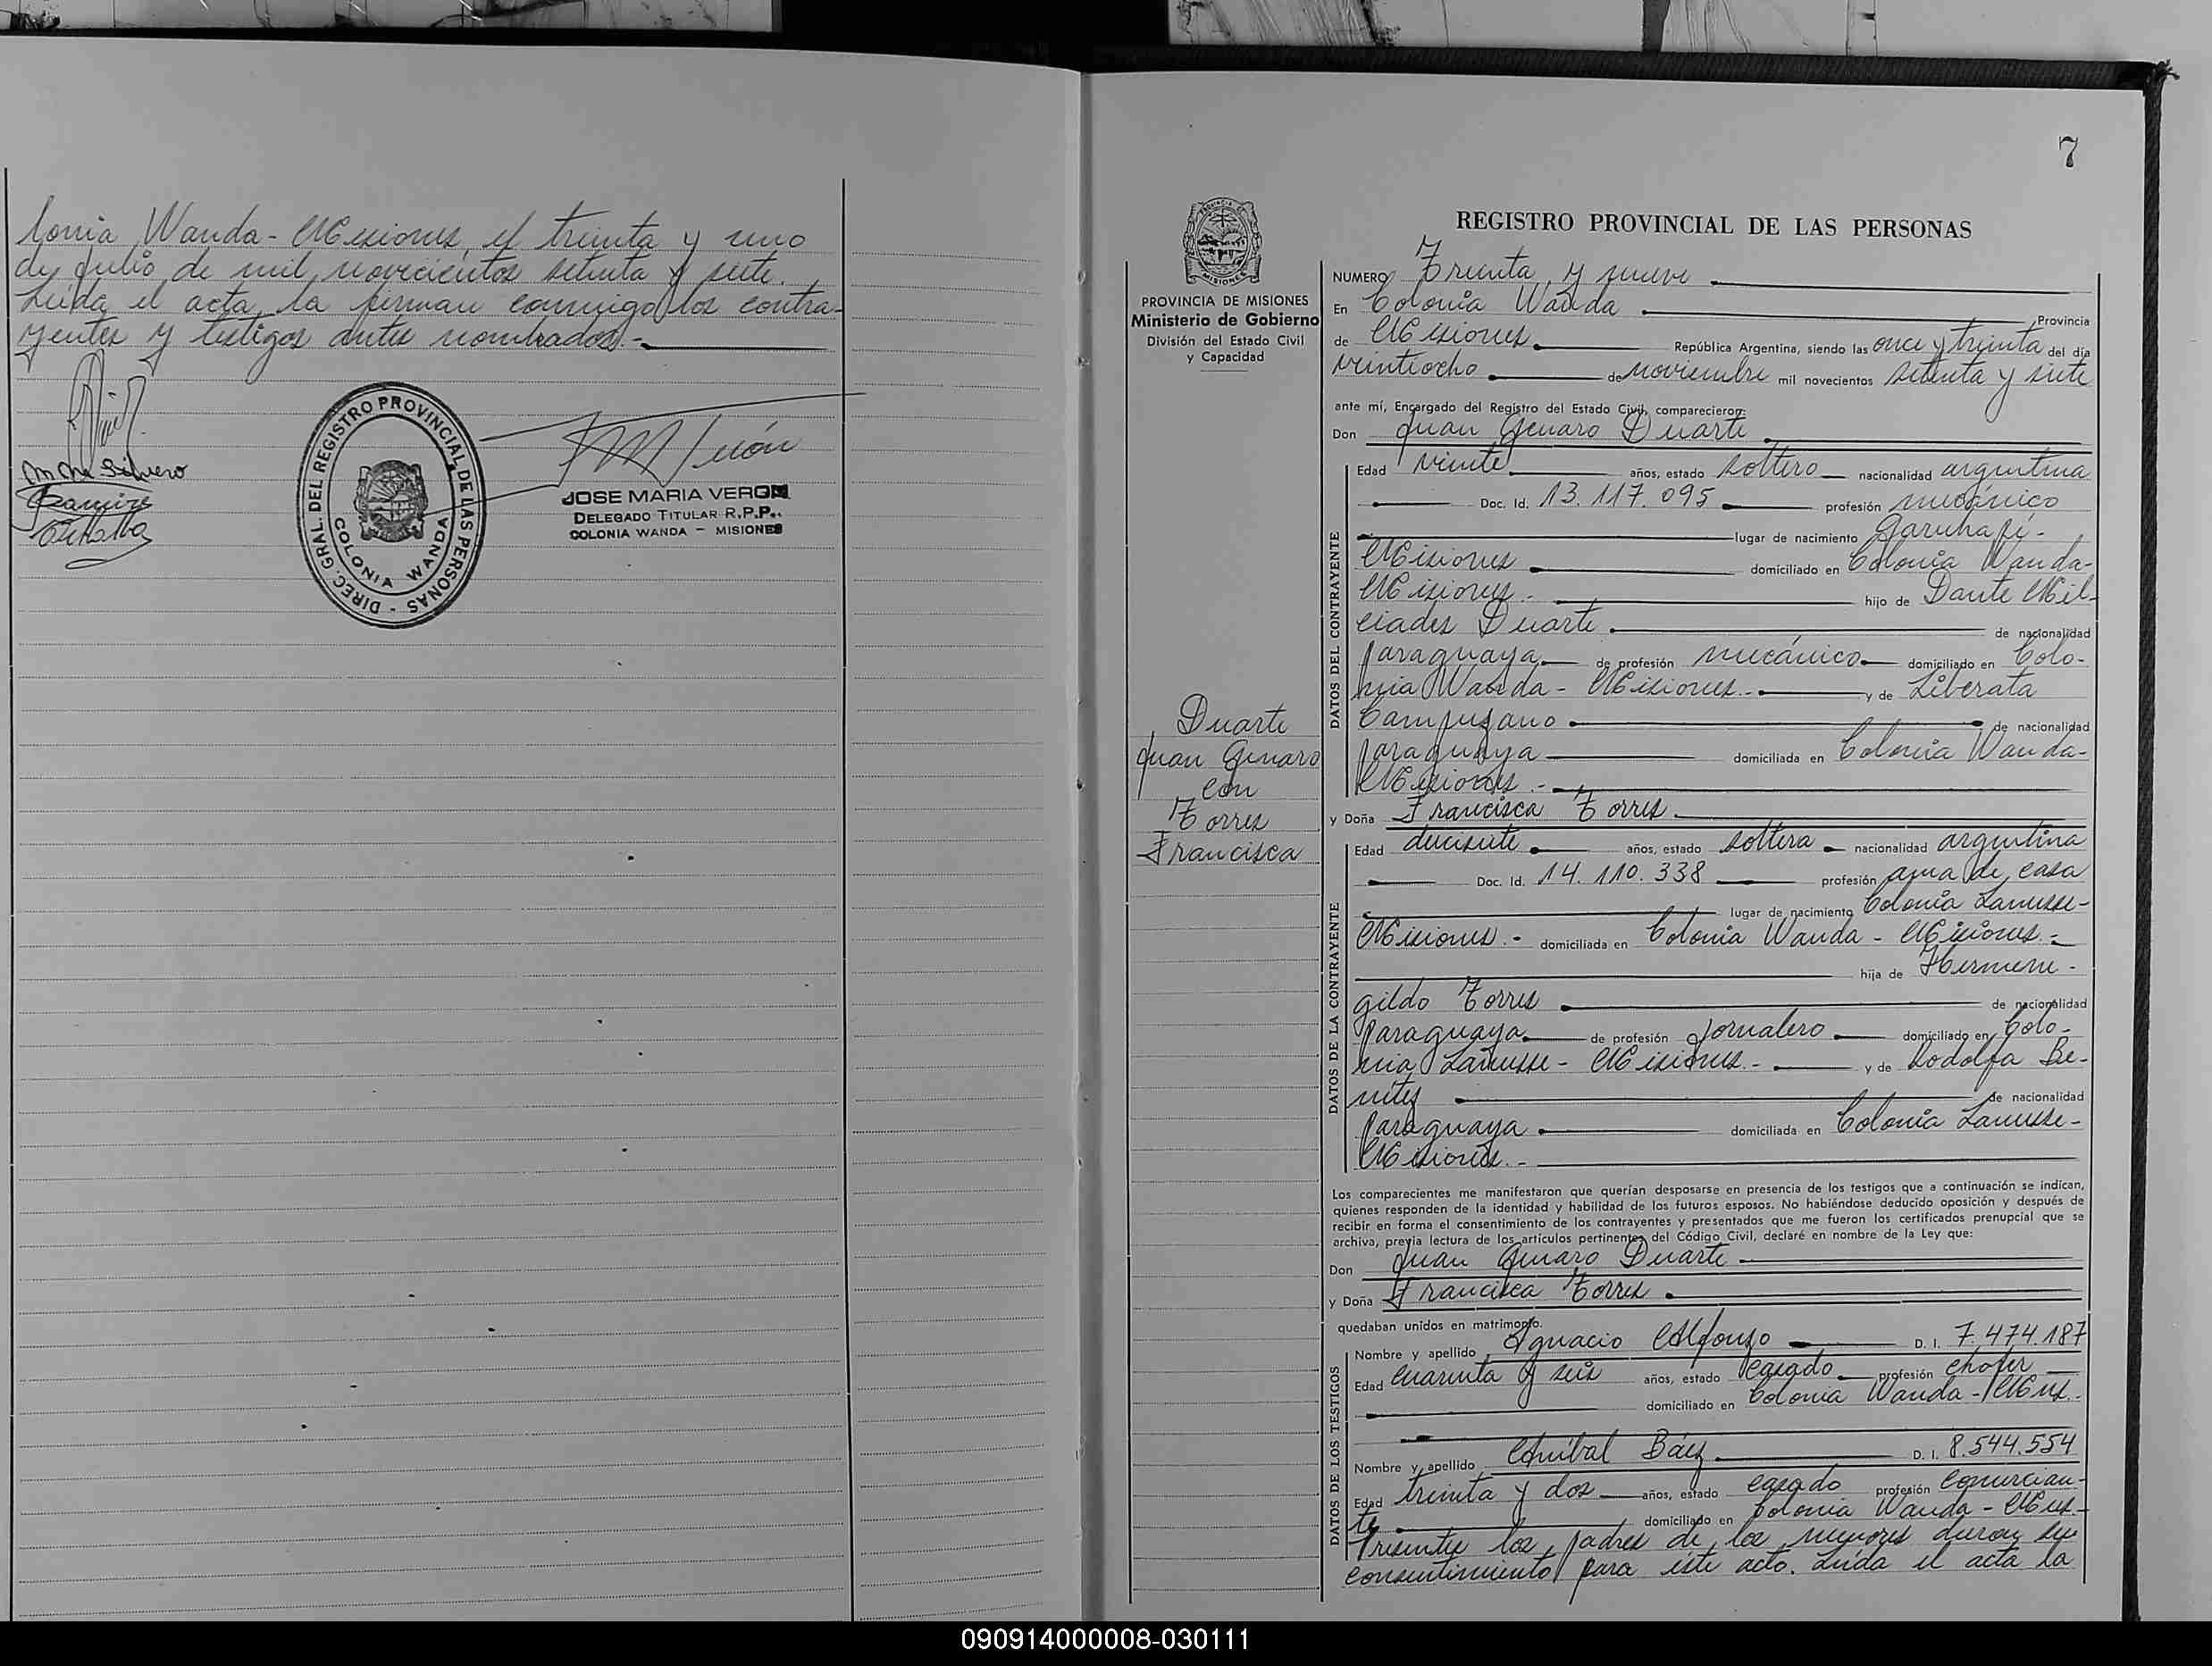 lonia Wanda - Misiones, el treinta y uno
de Julio de mil novecientos setenta y siete.
Leída el acta, la firman conmigo los contra-
yentes y testigos antes nombrados.-
DIREC. GRAL. DEL REGISTRO PROVINCIAL DE LAS PERSONAS -
COLONIA WANDA
JOSE MARIA VERON
DELEGADO TITULAR R.P.P.
COLONIA WANDA - MISIONES
7
PROVINCIA DE MISIONES
Ministerio de Gobierno
División del Estado Civil
y Capacidad
Duarte
Juan Genaro
con
Torres
Francisca
REGISTRO PROVINCIAL DE LAS PERSONAS
NUMERO Treinta y nueve
En Colonia Wanda Provincia
de Misiones República Argentina, siendo las once y treinta del día
veintiocho de noviembre mil novecientos setenta y siete
ante mí, Encargado del Registro del Estado Civil, comparecieron:
Don Juan Genaro Duarte
DATOS DEL CONTRAYENTE
Edad veinte años, estado soltero nacionalidad argentina
Doc. Id. 13.117.095 profesión mecánico
lugar de nacimiento Garuhapé -
Misiones domiciliado en Colonia Wanda -
Misiones.- hijo de Dante Mil-
ciades Duarte de nacionalidad
paraguaya de profesión mecánico domiciliado en Colo-
nia Wanda - Misiones.- y de Liberata
Campuzano de nacionalidad
paraguaya domiciliada en Colonia Wanda -
Misiones.-
y Doña Francisca Torres
DATOS DE LA CONTRAYENTE
Edad diecisiete años, estado soltera nacionalidad argentina
Doc. Id. 14.110.338 profesión ama de casa
lugar de nacimiento Colonia Lanusse -
Misiones.- domiciliada en Colonia Wanda - Misiones.-
hija de Hermene-
gildo Torres de nacionalidad
paraguaya de profesión Jornalero domiciliado en Colo-
nia Lanusse - Misiones.- y de Rodolfa Be-
nítez de nacionalidad
paraguaya domiciliada en Colonia Lanusse -
Misiones.-
Los comparecientes me manifestaron que querían desposarse en presencia de los testigos que a continuación se indican,
quienes responden de la identidad y habilidad de los futuros esposos. No habiéndose deducido oposición y después de
recibir en forma el consentimiento de los contrayentes y presentados que me fueron los certificados prenupcial que se
archiva, previa lectura de los artículos pertinentes del Código Civil, declaré en nombre de la Ley que:
Don Juan Genaro Duarte
y Doña Francisca Torres
quedaban unidos en matrimonio.
DATOS DE LOS TESTIGOS
Nombre y apellido Ignacio Alfonzo D. I. 7.474.187
Edad cuarenta y seis años, estado casado profesión chofer
domiciliado en Colonia Wanda - Mnes.-
Nombre y apellido Aníbal Báez D. I. 8.544.554
Edad treinta y dos años, estado casado profesión comercian-
te domiciliado en Colonia Wanda - Mnes.-
Presentes los padres de los menores dieron su
consentimiento para éste acto. Leída el acta la
090914000008-030111